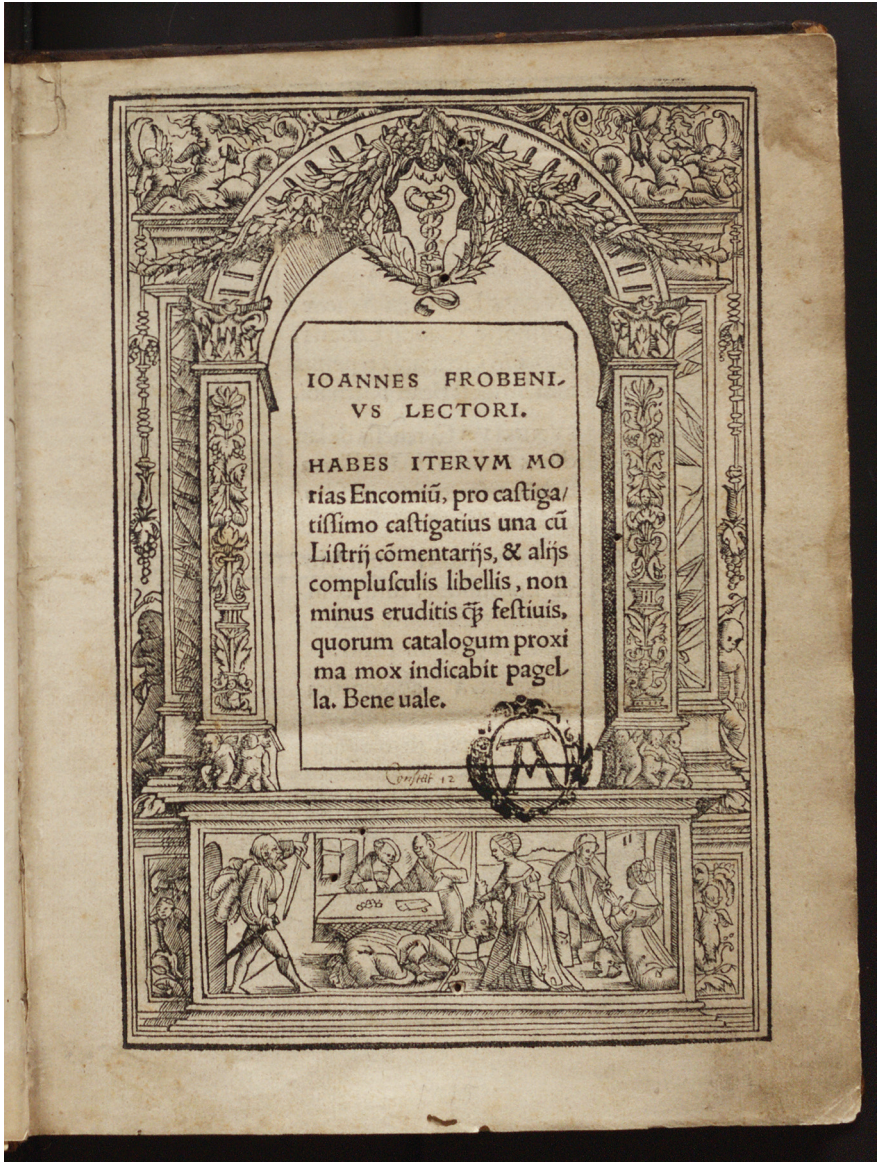 IOANNES FROBENI⸗
VS LECTORI.
HABES ITERVM MO
rias Encomiū, pro caſtiga/
tiſſimo caſtigatius una cū
Liſtrij cōmentarijs, & alijs
compluſculis libellis, non
minus eruditis q̄ꝫ feſtiuis,
quorum catalogum proxi
ma mox indicabit pagel⸗
la. Bene uale.